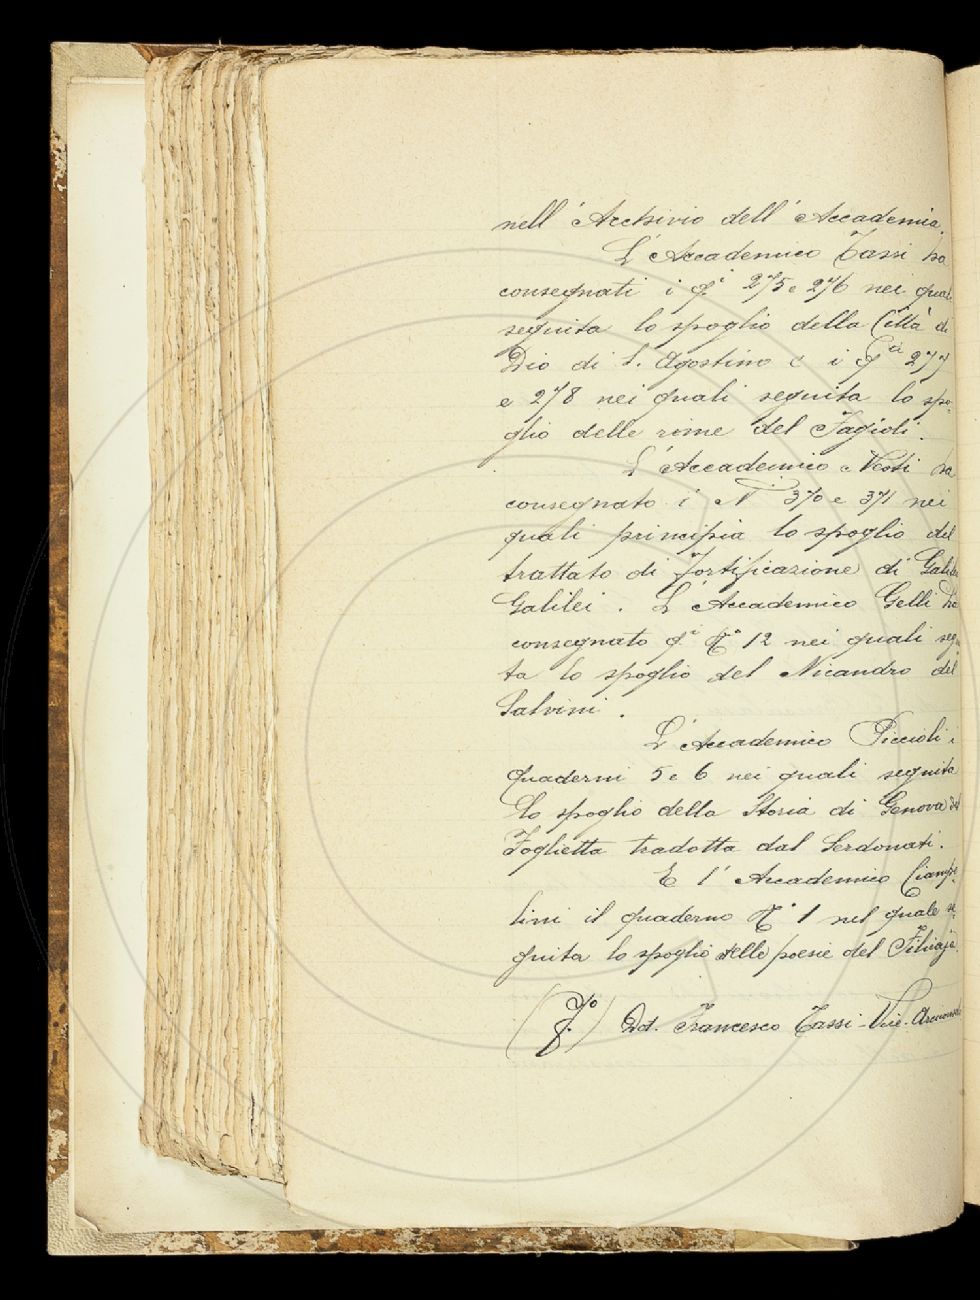 nell'Archivio dell'Accademia.
L'Accademico Tassi ha
consegnati i q.i 275 e 276 nei quali
seguita lo spoglio della Città di
Dio di S. Agostino e i q.i 277
e 278 nei quali seguita lo spo-
glio delle rime del Fagioli.
L'Accademico Nesti ha
consegnato i N.i 370 e 371 nei
quali principia lo spoglio del
trattato di Fortificazione di Galileo
Galilei. L'Accademico Gelli ha
consegnato q.i N.° 12 nei quali segui
ta lo spoglio del Nicandro del
Salvini.
L'Accademico Piccioli i
quaderni 5 e 6 nei quali seguita
lo spoglio della Storia di Genova del
Foglietta tradotta dal Serdonati.
E l'Accademico Ciampo
lini il quaderno N.° 1 nel quale se-
guita lo spoglio delle poesie del Filicaje.
(F.to) Dot. Francesco Tassi Vice-